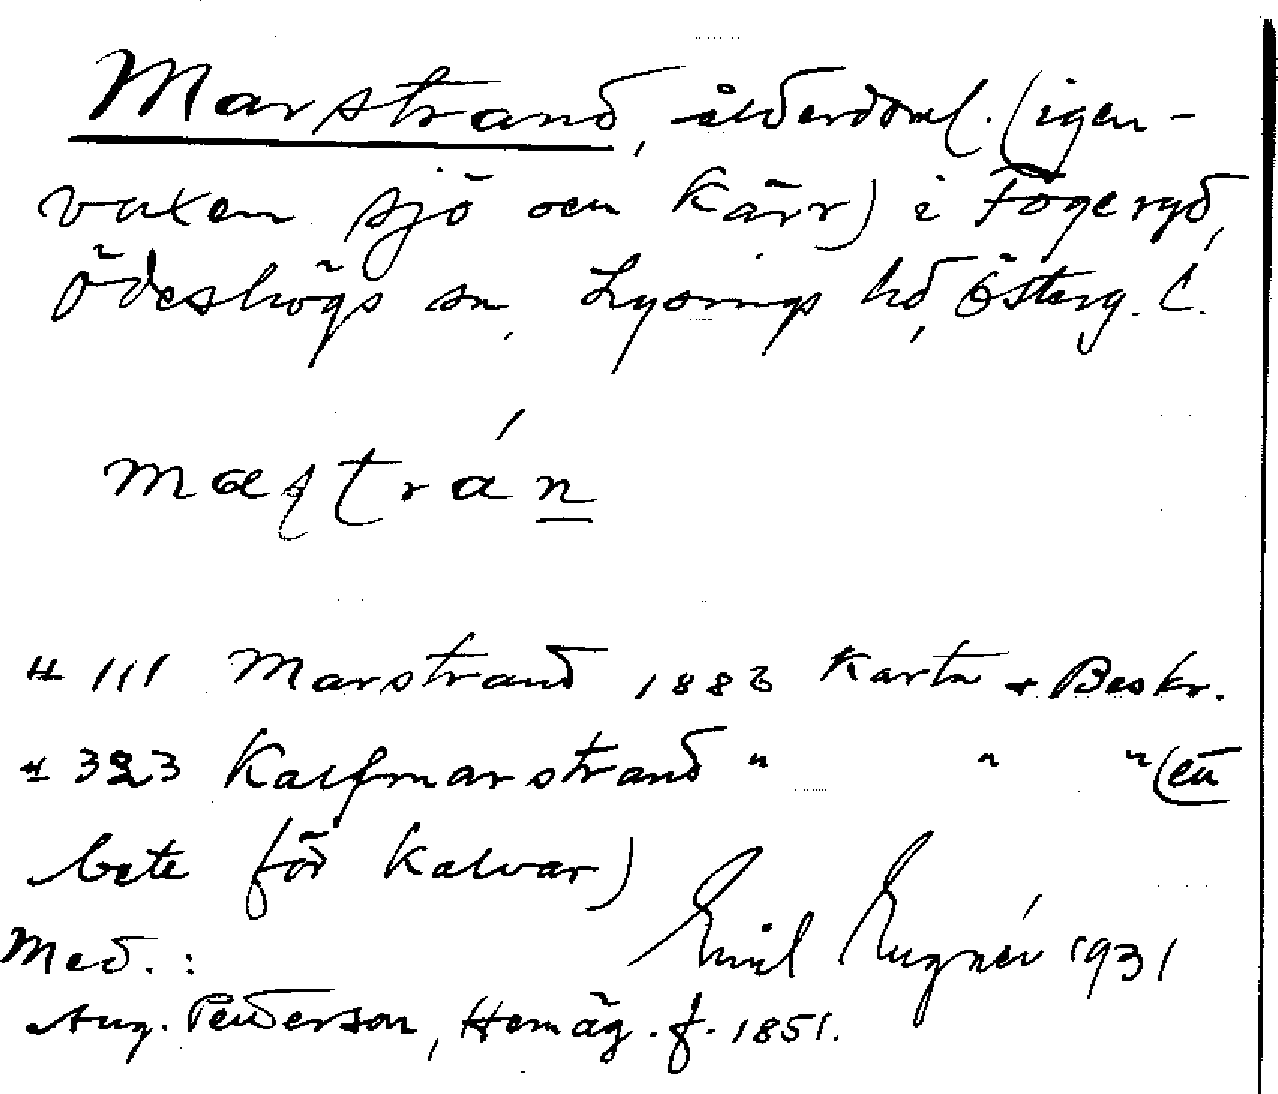 Marstrand, ålderdoml. (igen-
vuxen sjö och kärr) i Fogeryd,
Ödeshögs sn, Lysings hd, Österg. l.
mastrán
# 111 Marstrand 1883 Karta & Beskr.
# 323 Kalfmarstrand " " " (en
bete för kalvar)
Med.: Emil 1931
Aug. Petterson, Hemäg. f. 1851.